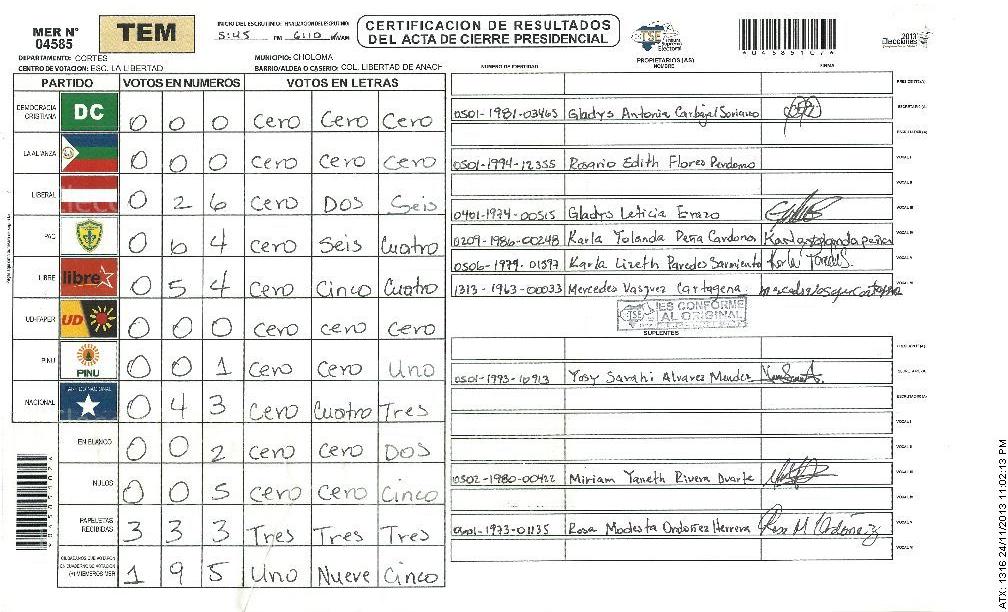 MER N° 04585
TEM
INICIO DEL ESCRUTINIO FINALIZACION DEL ESCRUTINIO
5:45 PM 6:10
CERTIFICACION DE RESULTADOS DEL ACTA DE CIERRE PRESIDENCIAL
TSE Tribunal Supremo Electoral
Elecciones 2013
DEPARTAMENTO: CORTES
MUNICIPIO: CHOLOMA
CENTRO DE VOTACION: ESC. LA LIBERTAD
BARRIO/ALDEA O CASERIO: COL. LIBERTAD DE ANACH
PARTIDO VOTOS EN NUMEROS VOTOS EN LETRAS
DEMOCRACIA CRISTIANA DC 0 0 0 Cero Cero Cero
LA ALIANZA 0 0 0 Cero Cero Cero
LIBERAL 0 2 6 Cero Dos Seis
PAC 0 6 4 Cero Seis Cuatro
LIBRE libre 0 5 4 Cero Cinco Cuatro
UD-FAPER UD 0 0 0 Cero Cero Cero
PINU PINU 0 0 1 Cero Cero Uno
NACIONAL 0 4 3 Cero Cuatro Tres
EN BLANCO 0 0 2 Cero Cero Dos
NULOS 0 0 5 Cero Cero Cinco
PAPELETAS RECIBIDAS 3 3 3 Tres Tres Tres
CIUDADANOS QUE VOTARON EN CUADERNO DE VOTACION (+) MIEMBROS MER 1 9 5 Uno Nueve Cinco
PROPIETARIOS (AS)
NUMERO DE IDENTIDAD NOMBRE FIRMA
PRESIDENTE(A)
0501-1981-03465 Gladys Antonia Carbajal Soriano SECRETARIO(A)
ESCRUTADOR(A)
0501-1994-12355 Rosario Edith Flores Perdomo VOCAL I
VOCAL II
0401-1974-00515 Gladys Leticia Erazo VOCAL III
0209-1986-00248 Karla Yolanda Peña Cardona Karla yolanda peña VOCAL IV
0506-1979-01597 Karla Lizeth Paredes Sarmiento VOCAL V
1313-1963-00033 Mercedes Vasquez Cartagena. VOCAL VI
TSE ES CONFORME AL ORIGINAL
SUPLENTES
PRESIDENTE(A)
0501-1993-10913 Yosy Sarahi Alvarez Mendez SECRETARIO(A)
ESCRUTADOR(A)
VOCAL I
VOCAL II
0502-1980-00422 Miriam Yaneth Rivera Duarte VOCAL III
VOCAL IV
1973-01135 Rosa Modesta Ordoñez Herrera Rosa M Ordóñez VOCAL V
VOCAL VI
ATX: 1316 24/11/2013 11:02:13 PM